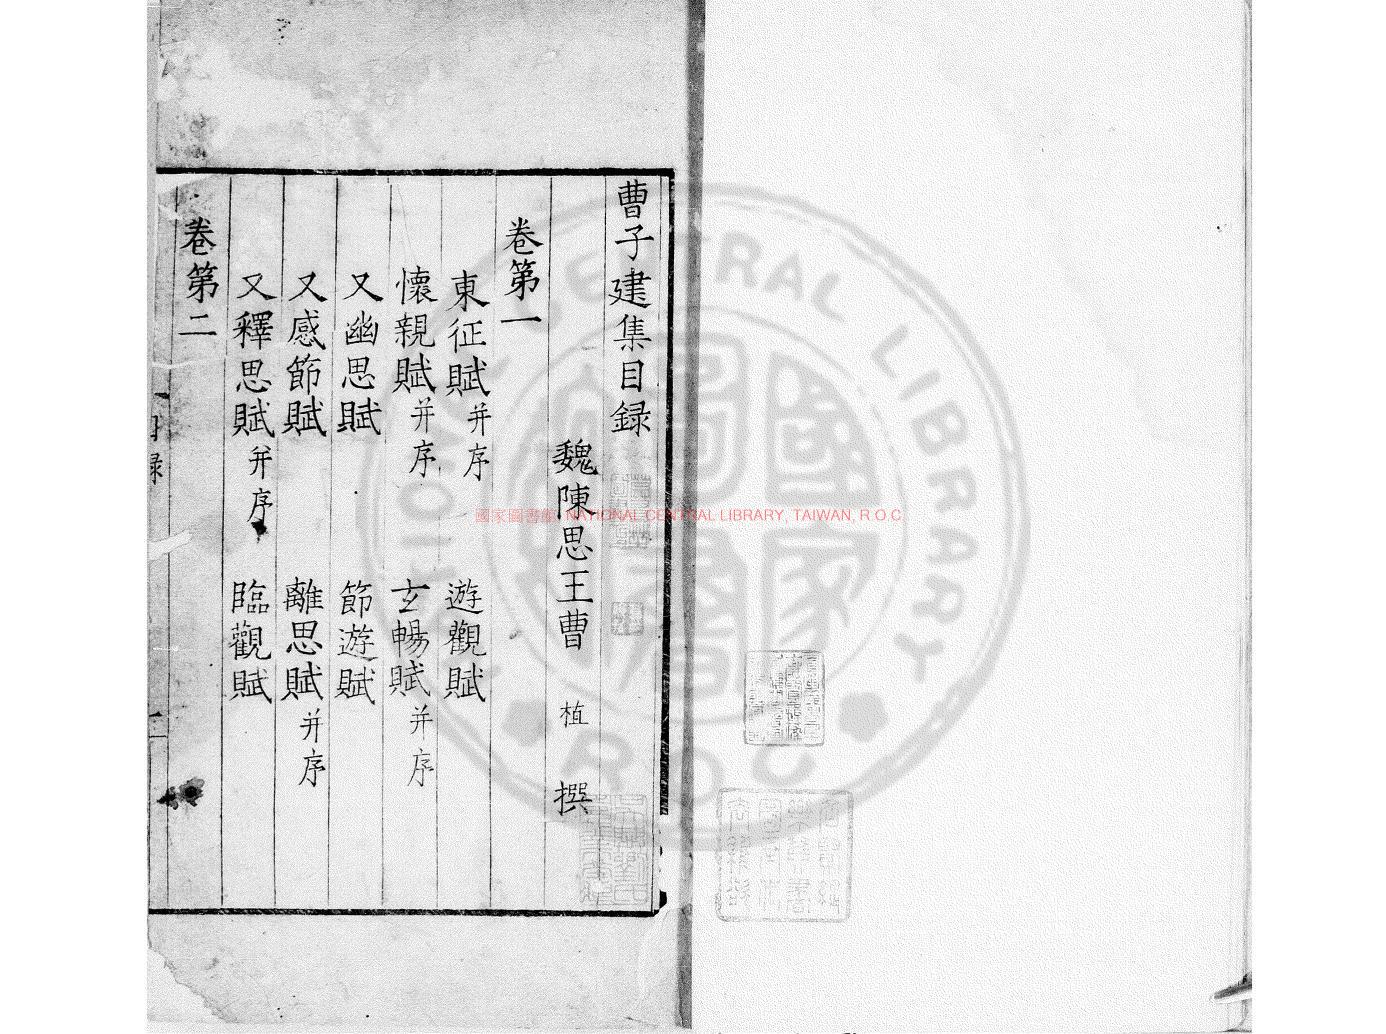 曹子建集目録
魏陳思王曹植撰
卷第一
東征賦并序 遊觀賦
懷親賦并序 玄暢賦并序
又幽思賦 節遊賦
又感節賦 離思賦并序
又釋思賦并序 臨觀賦
卷第二
國家圖書館 NATIONAL CENTRAL LIBRARY, TAIWAN, R.O.C
CENTRAL LIBRARY
R O C
國家圖書